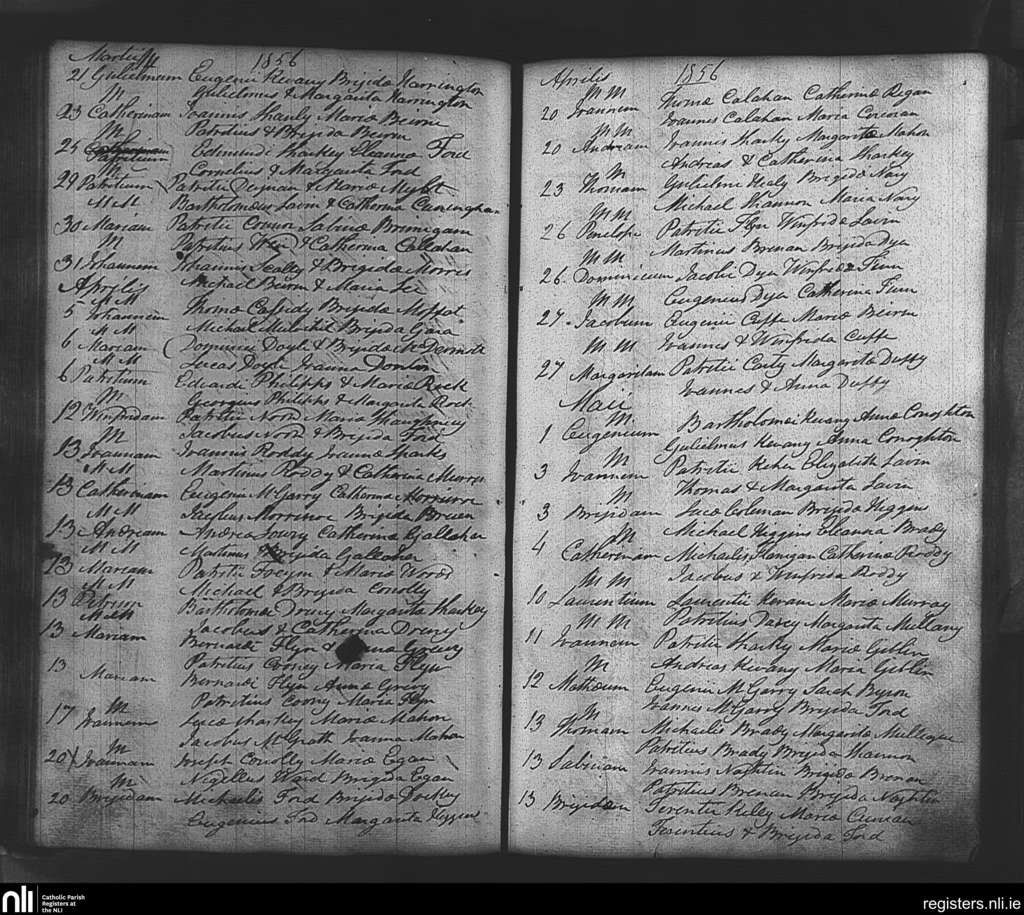 Martii 1856
21 Gulielmum Eugenii Kevany Brijida Harrington
M Gulielmus & Margarita Harrington
23 Catherinam Joannis Sharly Maria Beirne
M Patritius & Brijida Beirne
24 Patritium Edmundi Sharkey Eleanna Ford
M Cornelius & Margarita Ford
29 Patritium Patritii & Maria
M M Bartholomeus Lavin & Catherina Cuninghan
30 Mariam Patritii Sabina
M Patritius & Catherina Callahan
31 Johannem Johannis & Brigida Morris
Aprilis Michael Beirn & Maria
M M
5 Johannem Thoma Cassidy Brijida Moffat
M M Michael Brijida Gara
6 Mariam Dominici Doyle & Brijida
M M Lucas Doyle Joanna
6 Patritium Edwardi Philipps & Maria Rock
M Georgius Philipps & Margarita Rock
12 Winifridam Patritii Noon Maria
M Jacobus Noon & Brijida Ford
13 Joannam Joannis Roddy Joanna Sharks
M M Martinus Roddy & Catherine
13 Catherinam Eugenii McGarry Catherina Morrisroe
M M Jacobus Morrisroe Brijida
13 Andream Andrea Lowry Catherina Gallaher
M M Martinus & Brijida Gallaher
13 Mariam Patritii & Maria Woods
M M Michael & Brijida Conolly
13 Petrum Bartholomæ Drury Margarita Sharkey
M M Jacobus & Catherina Drury
13 Mariam Bernardi Flyn &
Patritius Cooney Maria Flyn
13 Mariam Bernardi Flyn Anna
Patritius Coony Maria Flyn
17 M Joannem Luca Sharkey Maria Mahon
Jacobus McGrath Joanna Mahon
20 M Joannam Joseph Conolly Maria Egan
M Nigellus Ward Brigida Egan
20 Brijidam Michaelis Ford Brijida
Eugenius Ford Margarita Higgins
Aprilis 1856
M M
20 Joannem Thoma Calahan Catherina Regan
Joannes Calahan Maria Corcoran
M M
20 Andream Joannis Sharky Margarita Mahon
M Andreas & Catherina Sharkey
23 Thomam Gulielmi Healy Brigida Nary
M M Michael Shannon Maria Nary
26 Penelope Patritii Flyn Winifrida Lavin
M M Martinus Brenan Brijida Dya
26. Dominicum Jacobi Dya Winifrida Finn
M M Eugenius Dya Catherine Finn
27 - Jacobum Eugenii Cuffe Maria Beirne
M M Joannes & Winifrida Cuffe
27 Margaritam Patritii Carty Margarita Duffy
Joannes & Anna Duffy
Maii
M
1 Eugenium Bartholomei Kevany Anna Conoghton
Gulielmus Kevany Anna Conoghton
3 M Joannem Patritii Elizabeth Lavin
M Thomas & Margarita Lavin
3 Brijidam Coleman Brijida Higgins
M Michael Higgins Eleanna Brady
4 Catherinam Michaelis Hanigan Catherina Roddy
M M Jacobus & Winifrida Roddy
10 Laurentium Laurentii Maria Murray
M M Patritius Davey Margarita Mullany
11 Joannem Patritii Sharky Maria Giblin
M Andreas Kevany Maria Giblin
12 Matheum Eugenii McGarry Sarah Byron
M Joannes McGarry Brijida Ford
13 Thomam Michaelis Brady Margarita
Patritius Brady Brijida Shannon
13 Sabinam Joannis Naghtin Brijida Brenan
Patritius Brenan Brijida Naghtin
13 Brijidam Terentii Maria
Terentius & Brijida Ford
nli Catholic Parish
Registers at
the NLI
registers.nli.ie